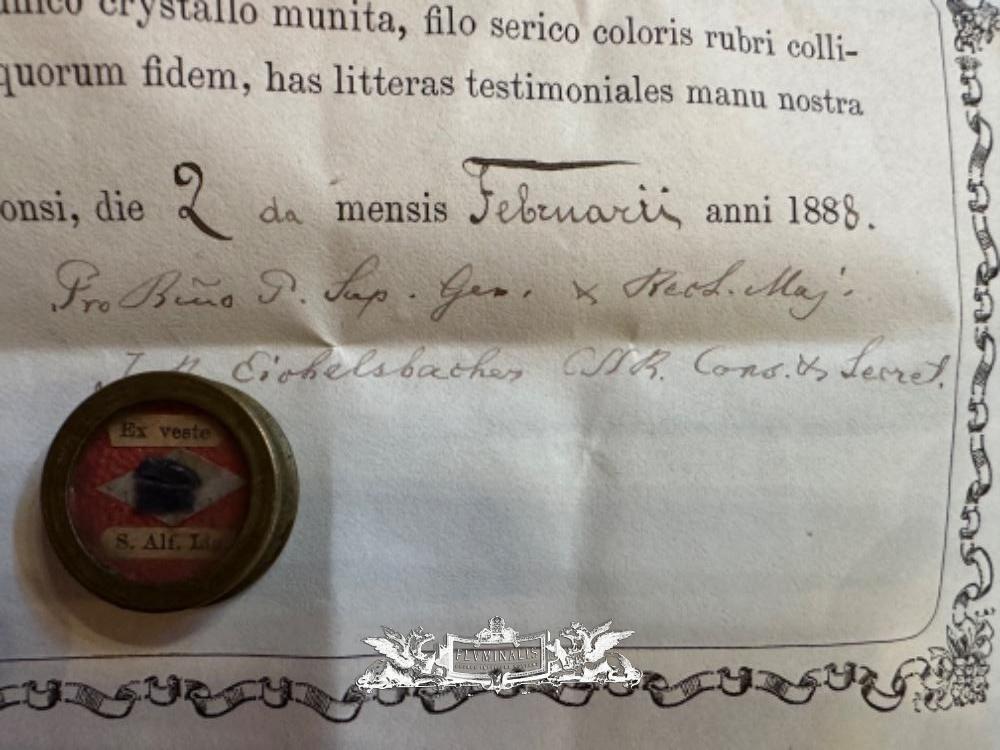 crystallo munita, filo serico coloris rubri colli-
quorum fidem, has litteras testimoniales manu nostra
onsi, die 2 da mensis Februarii anni 1888.
Pro Rm̃o P. Sup. Gen. & Rect. Maj.
Eichelsbacher CSSR. Cons. & Secret.
Ex veste
S. Alf. Lig
FLVMINALIS